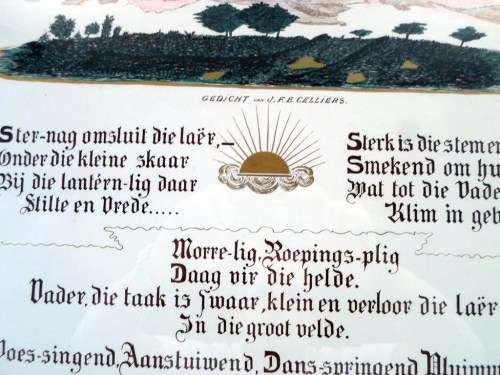 GEDICHT van J.F.E. CELLIERS.
Ster-nag omsluit die laër,—
Onder die kleine skaar
Bij die lantérn-lig daar
Stille en Vrede.....
Sterk is die stem en
Smekend om hu
Wat tot die Vade
Klim in geb
Morre-lig, Roepings-plig
Daag vir die helde.
Vader, die taak is swaar, klein en verloor die laër
In die groot velde.
Woes-singend, Aanstuiwend, Dans-springend Pluimm